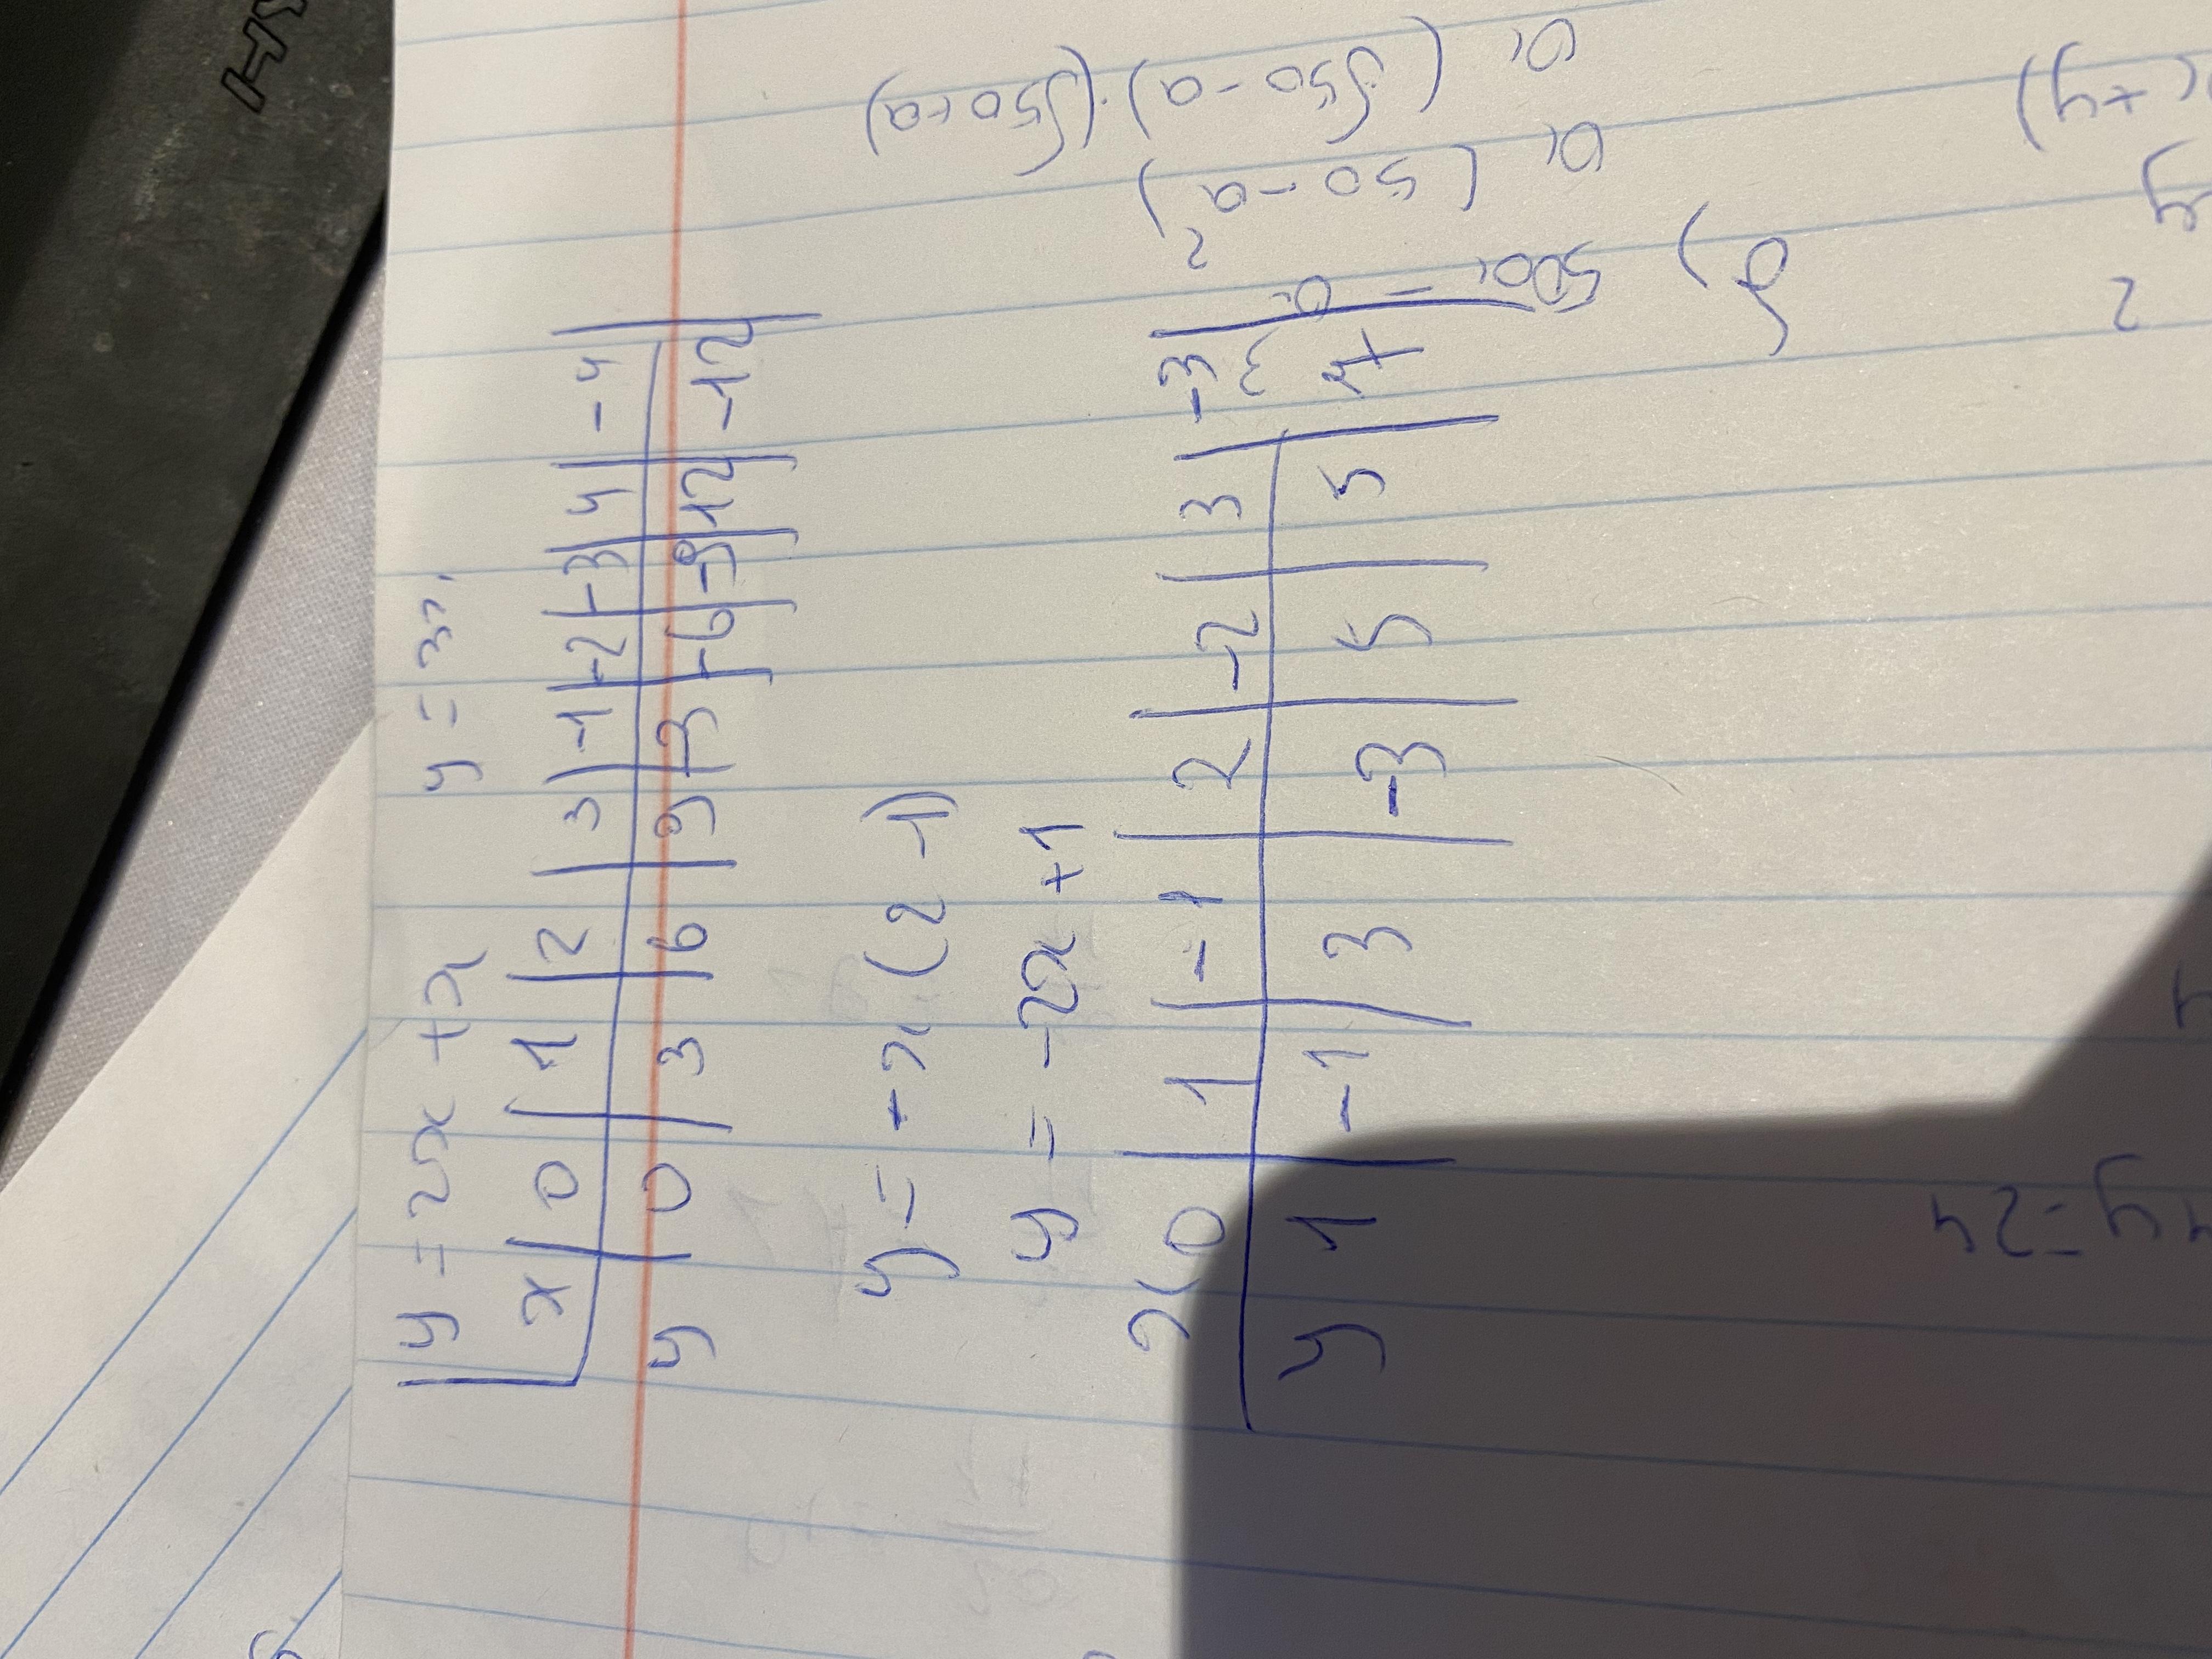 y = 2x + x y = 3x
x | 0 | 1 | 2 | 3 | -1 | -2 | -3 | 4 | -4
y | 0 | 3 | 6 | 9 | -3 | -6 | -9 | 12 | -12
y = -x (2 -1)
y = -2x +1
x | 0 | 1 | -1 | 2 | -2 | 3 | -3
y | 1 | -1 | 3 | -3 | 5 | 5
50a - a³
a (50 - a²)
a (√50 - a) · (√50 + a)
y = 24
HY